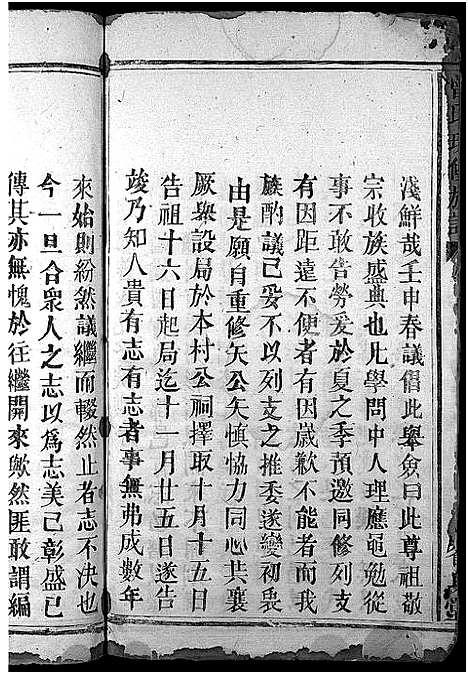 淺鮮哉壬申春議倡此舉僉曰此尊祖敬
宗收族盛典也凡學問中人理應黽勉從
事不敢告勞爰於夏之季預邀同修列支
有因距遠不便者有因歲歉不能者而我
族酌議已妥不以列支之推委遂變初衷
由是願自重修矢公矢慎恊力同心共襄
厥舉設局於本村公祠擇取十月十五日
告祖十六日起局迄十一月廿五日遂告
竣乃知人貴有志有志者事無弗成數年
來始則紛然議繼而輟然止者志不決也
今一旦合衆人之志以爲志美已彰盛已
傳其亦無愧於往繼開來歟然匪敢謂編